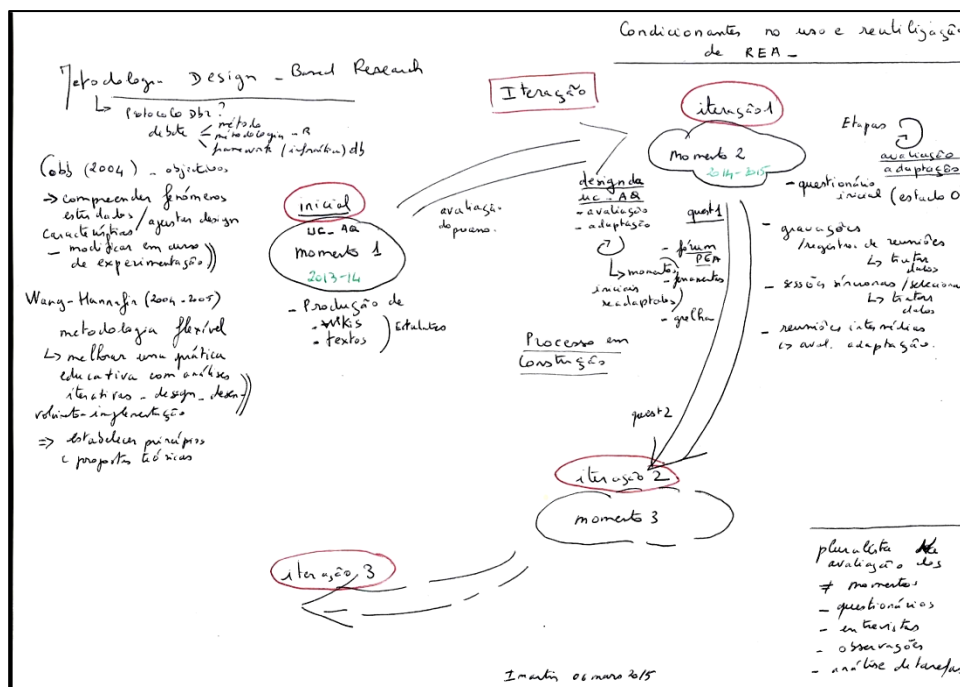 Condicionantes no uso e reutilização
de REA_
Metodologia Design _ Based Research
↳ Protocolo Dbr?
debate < método
metodologia - R
framework (informática) db
Cobb (2004) _ objectivos
→ compreender fenómenos
estudados / ajustar design
características
- modificar em curso
de experimentação
Wang-Hannafin (2004-2005)
metodologia flexível
↳ melhorar uma prática
educativa com análises
iterativas - design - desen-
volvimento-implementação
⇒ estabelecer princípios
e propostas teóricas
Iteração
inicial
UC-AQ
momento 1
2013-14
- Produção de
- wikis
- textos
Estudantes
avaliação
iteração 1
momento 2
2014-2015
design da
uc-AQ
- avaliação
- adaptação
↳ momentos
iniciais
readaptados
quest1
- fórum
PEA
- grelha
Processo em
Construção
quest2
Etapas
avaliação
adaptação
- questionário
inicial (estado 0
- gravações
/registos de reuniões
↳ tratar
dados
- sessões síncronas /
↳ tratar
dados
- reuniões intermédias
↳ aval. adaptação.
iteração 2
momento 3
iteração 3
pluralista
avaliação dos
≠ momentos
- questionários
- entrevistas
- observações
- análise de tarefas
Imartin 06 março 2015